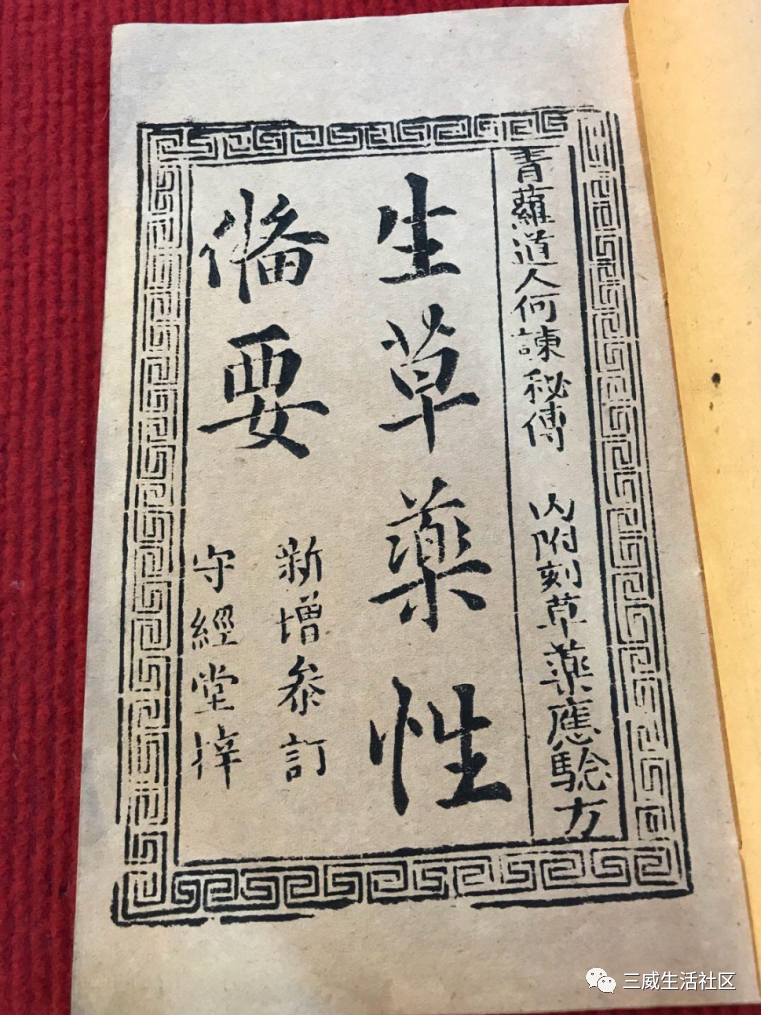 青蘿道人何諫秘傳 內附刻草藥應騐方
生草藥性
俻要
新增叅訂
守經堂梓
三威生活社区